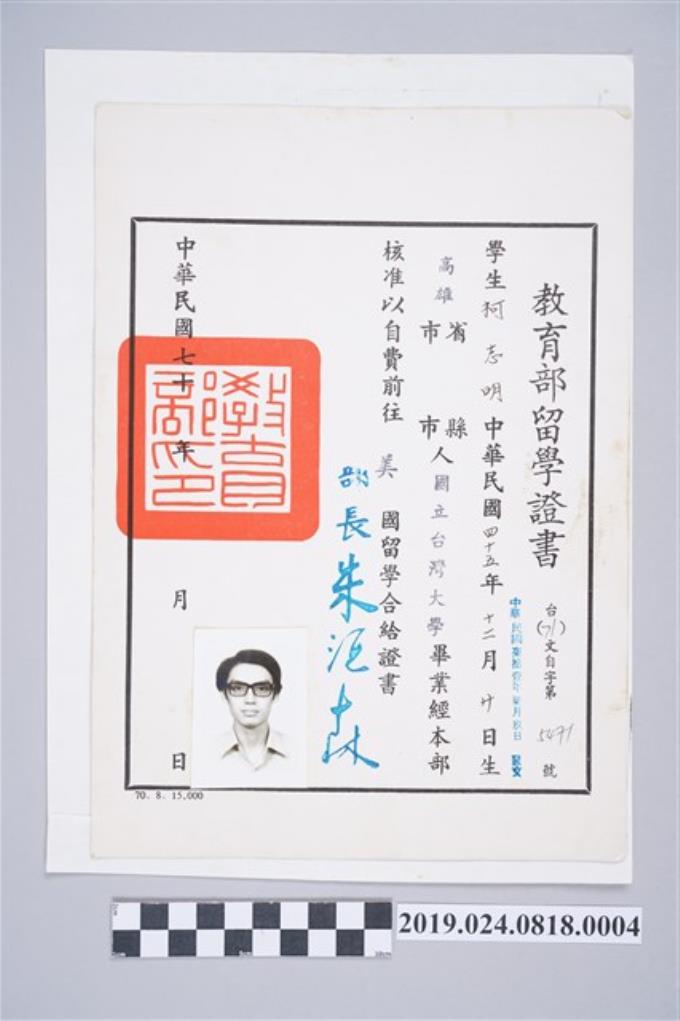 教育部留學證書
台(71)文自字第5471號
中華民國柒拾壹年柒月玖日 發文
學生柯志明中華民國四十五年十二月廿日生
高雄
省
市
縣
市
人國立台灣大學畢業經本部
核准以自費前往美國留學合給證書
部長朱滙森
中華民國七十年月日
教育部印
70. 8. 15,000
2019.024.0818.0004